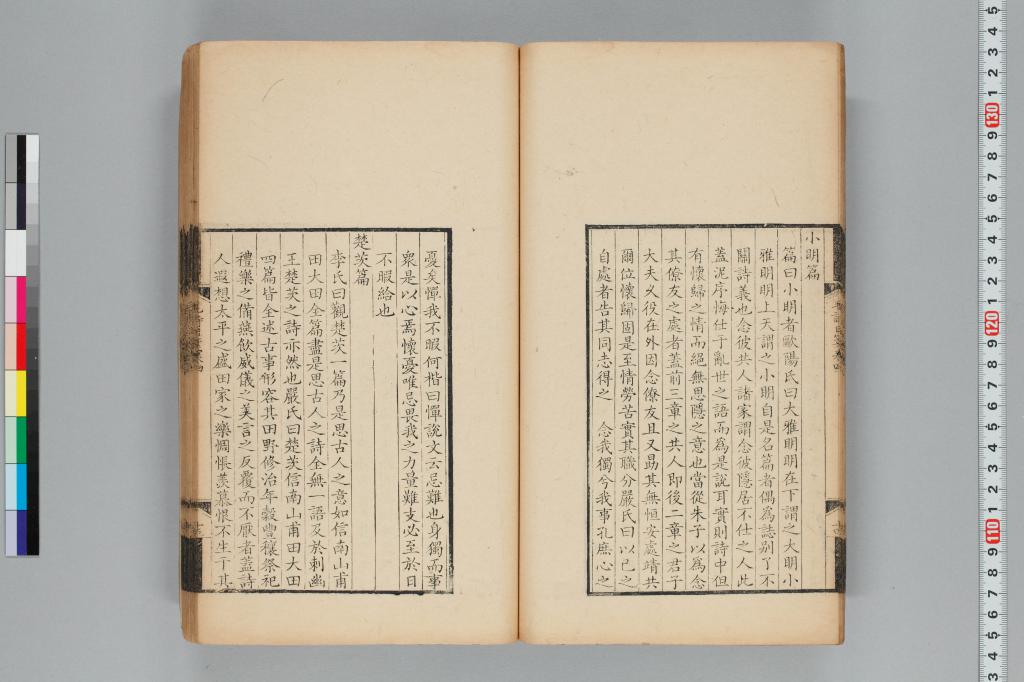 小明篇
篇曰小明者歐陽氏曰大雅明明在下謂之大明小
雅明明上天謂之小明自是名篇者偶為誌别了不
關詩義也念彼共人諸家謂念彼隱居不仕之人此
蓋泥序悔仕于亂世之語而為是說耳實則詩中但
有懷歸之情而絕無思隱之意也當從朱子以為念
其僚友之處者蓋前三章之共人即後二章之君子
大夫久役在外因念僚友且又勗其無恒安處靖共
爾位懷歸固是至情勞苦實其職分嚴氏曰以己之
自處者告其同志得之 念我獨兮我事孔庶心之
憂矣憚我不暇何楷曰憚說文云忌難也身獨而事
衆是以心焉懷憂唯忌畏我之力量難支必至於日
不暇給也
楚茨篇
李氏曰觀楚茨一篇乃是思古人之意如信南山甫
田大田全篇盡是思古人之詩全無一語及於刺幽
王楚茨之詩亦然也嚴氏曰楚茨信南山甫田大田
四篇皆全述古事形容其田野修治年穀豐穰祭祀
禮樂之備燕飲威儀之美言之反覆而不厭者蓋詩
人遐想太平之盛田家之樂惆悵羨慕恨不生于其